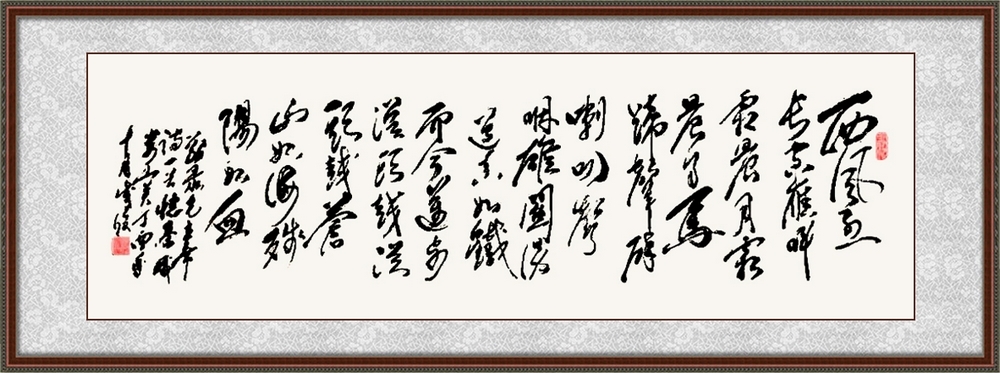 西風烈
长空雁叫
霜晨月霜
晨月馬
蹄聲碎
喇叭聲
咽雄關漫
道真如鐵
而今邁步
從頭越從
頭越蒼
山如海殘
陽如血
录毛主席
詩一首憶秦娥
娄山关丁酉年
十月